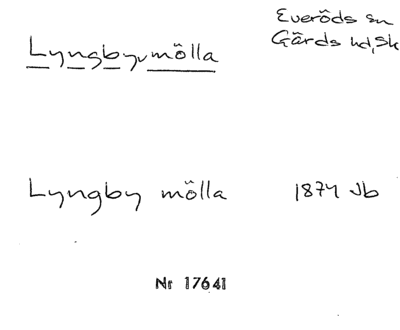 Lyngby mölla
Everöds sn
Gärds hd, Sk
Lyngby mölla 1874 Jb
Nr 17641